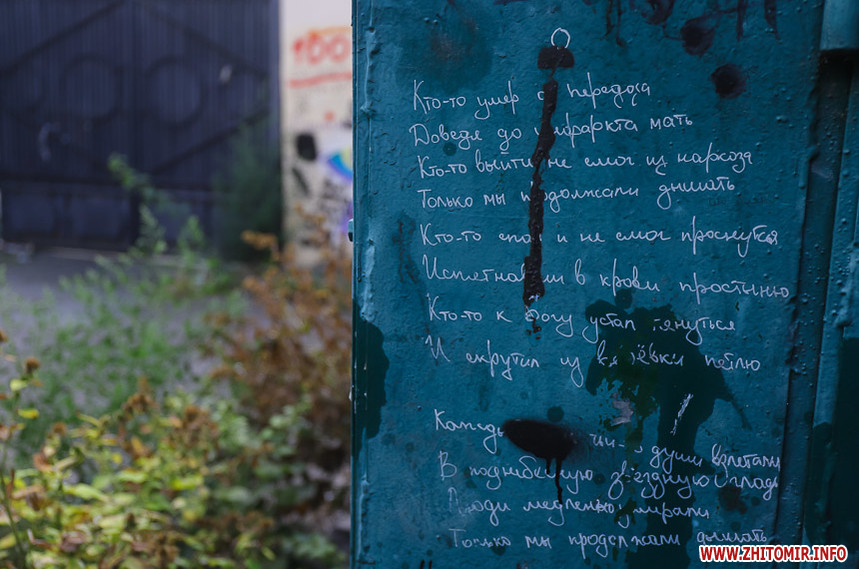 100
Кто-то умер с передоза
Доведя до инфаркта мать
Кто-то выйти не смог из наркоза
Только мы продолжали дышать
Кто-то спал и не смог проснуться
Испетнав в крови простынью
Кто-то к Богу устал тянуться
И скрутил из верёвки петлю
души взлетали
В поднебесную звёздную гладь
Люди медленно умирали
Только мы продолжали дышать
WWW.ZHITOMIR.INFO